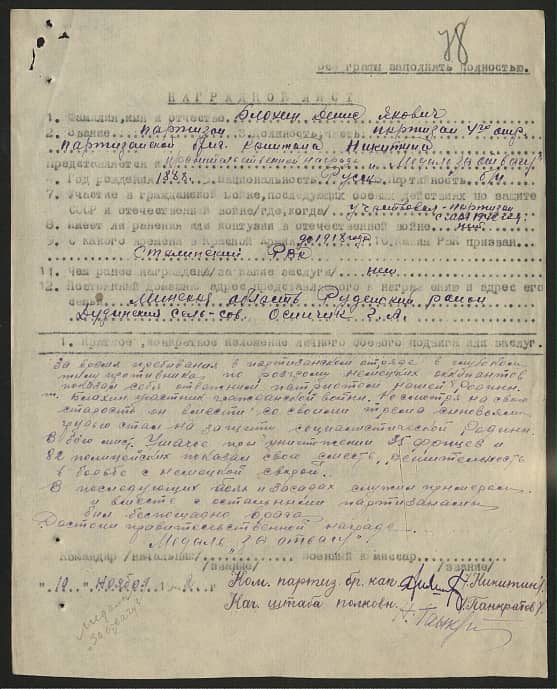 78
Все графы заполнять полностью.
НАГРАДНОЙ ЛИСТ
1. Фамилия, имя и отчество Блохин Денис Якович
2. Звание партизан 3. Должность, часть партизан отр.
партизанской бриг. капитана Никитина
Представляется к правительственной награде "Медаль за отвагу"
Год рождения 1888. Национальность Русск. Партийность б/п
7. Участие в гражданской войне, последующих боевых действиях по защите
СССР и отечественной войне /где, когда/ участвовал партизан
8. Имеет ли ранения или контузии в отечественной войне нет
9. С какого времени в Красной Армии до 1918 года 10. Каким РВК призван
Сталинский РВК
11. Чем ранее награжден /за какие заслуги/ нет
12. Постоянный домашний адрес представляемого к награждению и адрес его
семьи Минская область Руденский район
Дудинский Сель-сов. Осипчик З.А.
1. Краткое, конкретное изложение личного боевого подвига или заслуг.
За время пребывания в партизанском отряде в глубоком
тылу противника по разгрому немецких оккупантов
показал себя отважным патриотом нашей Родины.
т. Блахин участник гражданской войны. Несмотря на свою
старость он вместе со своими тремя сыновьями
грудью стал на защиту социалистической Родины.
В бою мист. при уничтожении 35 фрицев и
82 полицейских показал свою смелость, решительность
в борьбе с немецкой сворой.
В последующих боях и засадах служил примером
и вместе с остальными партизанами
бил беспощадно врага.
Достоин правительственной награде
"Медаль за отвагу"
Командир /начальник/ военный комиссар
/звание/ /звание/
"10" ноября 194 г.
Ком. партиз. бр. кап. /Никитин/
Нач. штаба полковн. /Панкратов/
Медаль
"За отвагу"